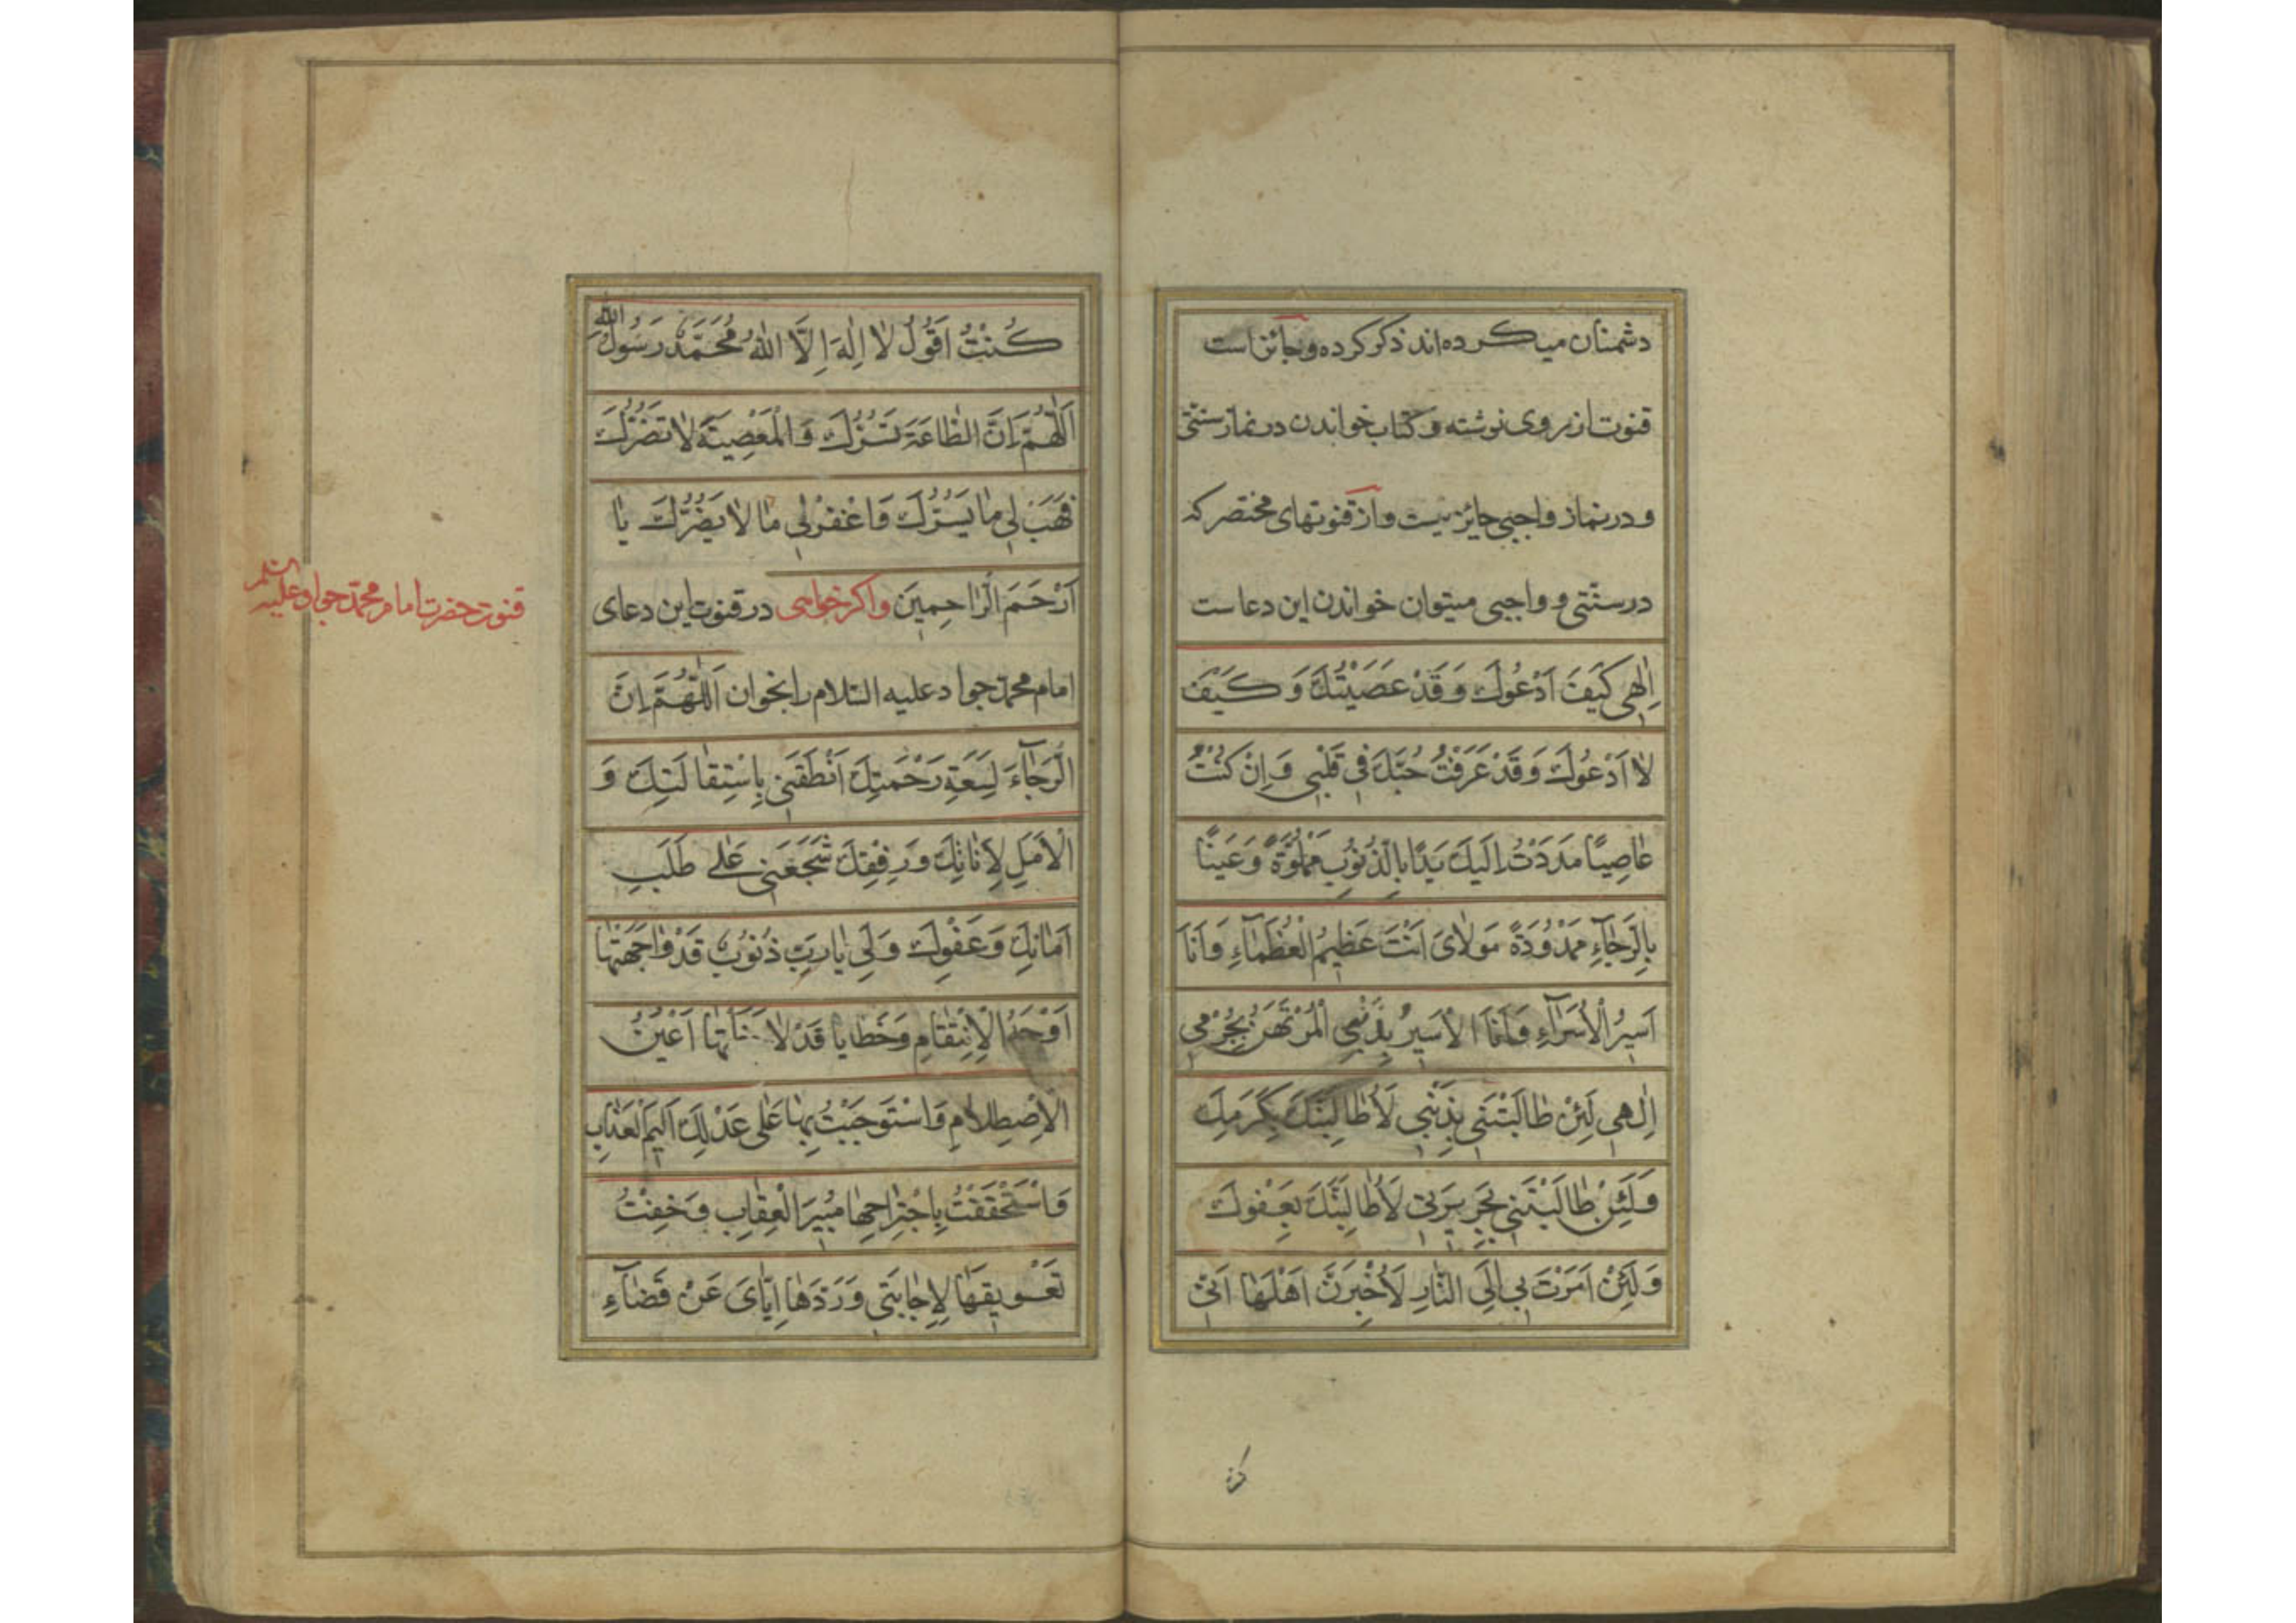 دشمنان میکرده‌اند ذکر کرده و جائز است
قنوت از روی نوشته و کتاب خواندن در نماز سنتی
و در نماز واجبی جائز نیست و از قنوتهای مختصر که
در سنتی و واجبی میتوان خواندن این دعاست
اِلٰهِی كَیْفَ اَدْعُوكَ وَ قَدْ عَصَیْتُكَ وَ كَیْفَ
لٰا اَدْعُوكَ وَ قَدْ عَرَفْتُ حُبَّكَ فِی قَلْبِی وَ اِنْ كُنْتُ
عٰاصِیًا مَدَدْتُ اِلَیْكَ یَدًا بِالذُّنُوبِ مَمْلُوَّةً وَ عَیْنًا
بِالرَّجٰآءِ مَمْدُودَةً مَوْلٰایَ اَنْتَ عَظِیمُ الْعُظَمٰآءِ وَ اَنَا
اَسِیرُ الْاُسَرٰآءِ وَ اَنَا الْاَسِیرُ بِذَنْبِی الْمُرْتَهَنُ بِجُرْمِی
اِلٰهِی لَئِنْ طٰالَبْتَنِی بِذَنْبِی لَاُطٰالِبَنَّكَ بِكَرَمِكَ
وَلَئِنْ طٰالَبْتَنِی بِجَرِیرَتِی لَاُطٰالِبَنَّكَ بِعَفْوِكَ
وَلَئِنْ اَمَرْتَ بِی اِلَی النّٰارِ لَاُخْبِرَنَّ اَهْلَهٰا اَنِّی
كُنْتُ اَقُولُ لٰا اِلٰهَ اِلَّا اللّٰهُ مُحَمَّدٌ رَسُولُ اللّٰهِ
اَللّٰهُمَّ اِنَّ الطّٰاعَةَ تَسُرُّكَ وَ الْمَعْصِیَةَ لٰا تَضُرُّكَ
فَهَبْ لِی مٰا یَسُرُّكَ وَ اغْفِرْ لِی مٰا لٰا یَضُرُّكَ یٰا
اَرْحَمَ الرّٰاحِمِینَ و اگر خواهی در قنوت این دعای
امام محمد جواد علیه السلام را بخوان اَللّٰهُمَّ اِنَّ
الرَّجٰآءَ لِسَعَةِ رَحْمَتِكَ اَنْطَقَنِی بِاسْتِقٰالَتِكَ وَ
الْاَمَلِ لِاَنٰاتِكَ وَ رِفْقِكَ شَجَّعَنِی عَلٰی طَلَبِ
اَمٰانِكَ وَ عَفْوِكَ وَلِی یٰا رَبِّ ذُنُوبٌ قَدْ وٰاجَهَتْهٰا
اَوْجُهُ الْاِنْتِقٰامِ وَ خَطٰایٰا قَدْ اَعْیُنُ
الْاِصْطِلٰامِ وَ اسْتَوْجَبْتُ بِهٰا عَلٰی عَدْلِكَ اَلِیمَ الْعَذٰابِ
وَ اسْتَحْقَقْتُ بِاجْتِرٰاحِهٰا مُبِیرَ الْعِقٰابِ وَ خِفْتُ
تَعْوِیقَهٰا لِاِجٰابَتِی وَ رَدَّهٰا اِیّٰایَ عَنْ قَضٰآءِ
قنوت حضرت امام محمد جواد علیه السلم